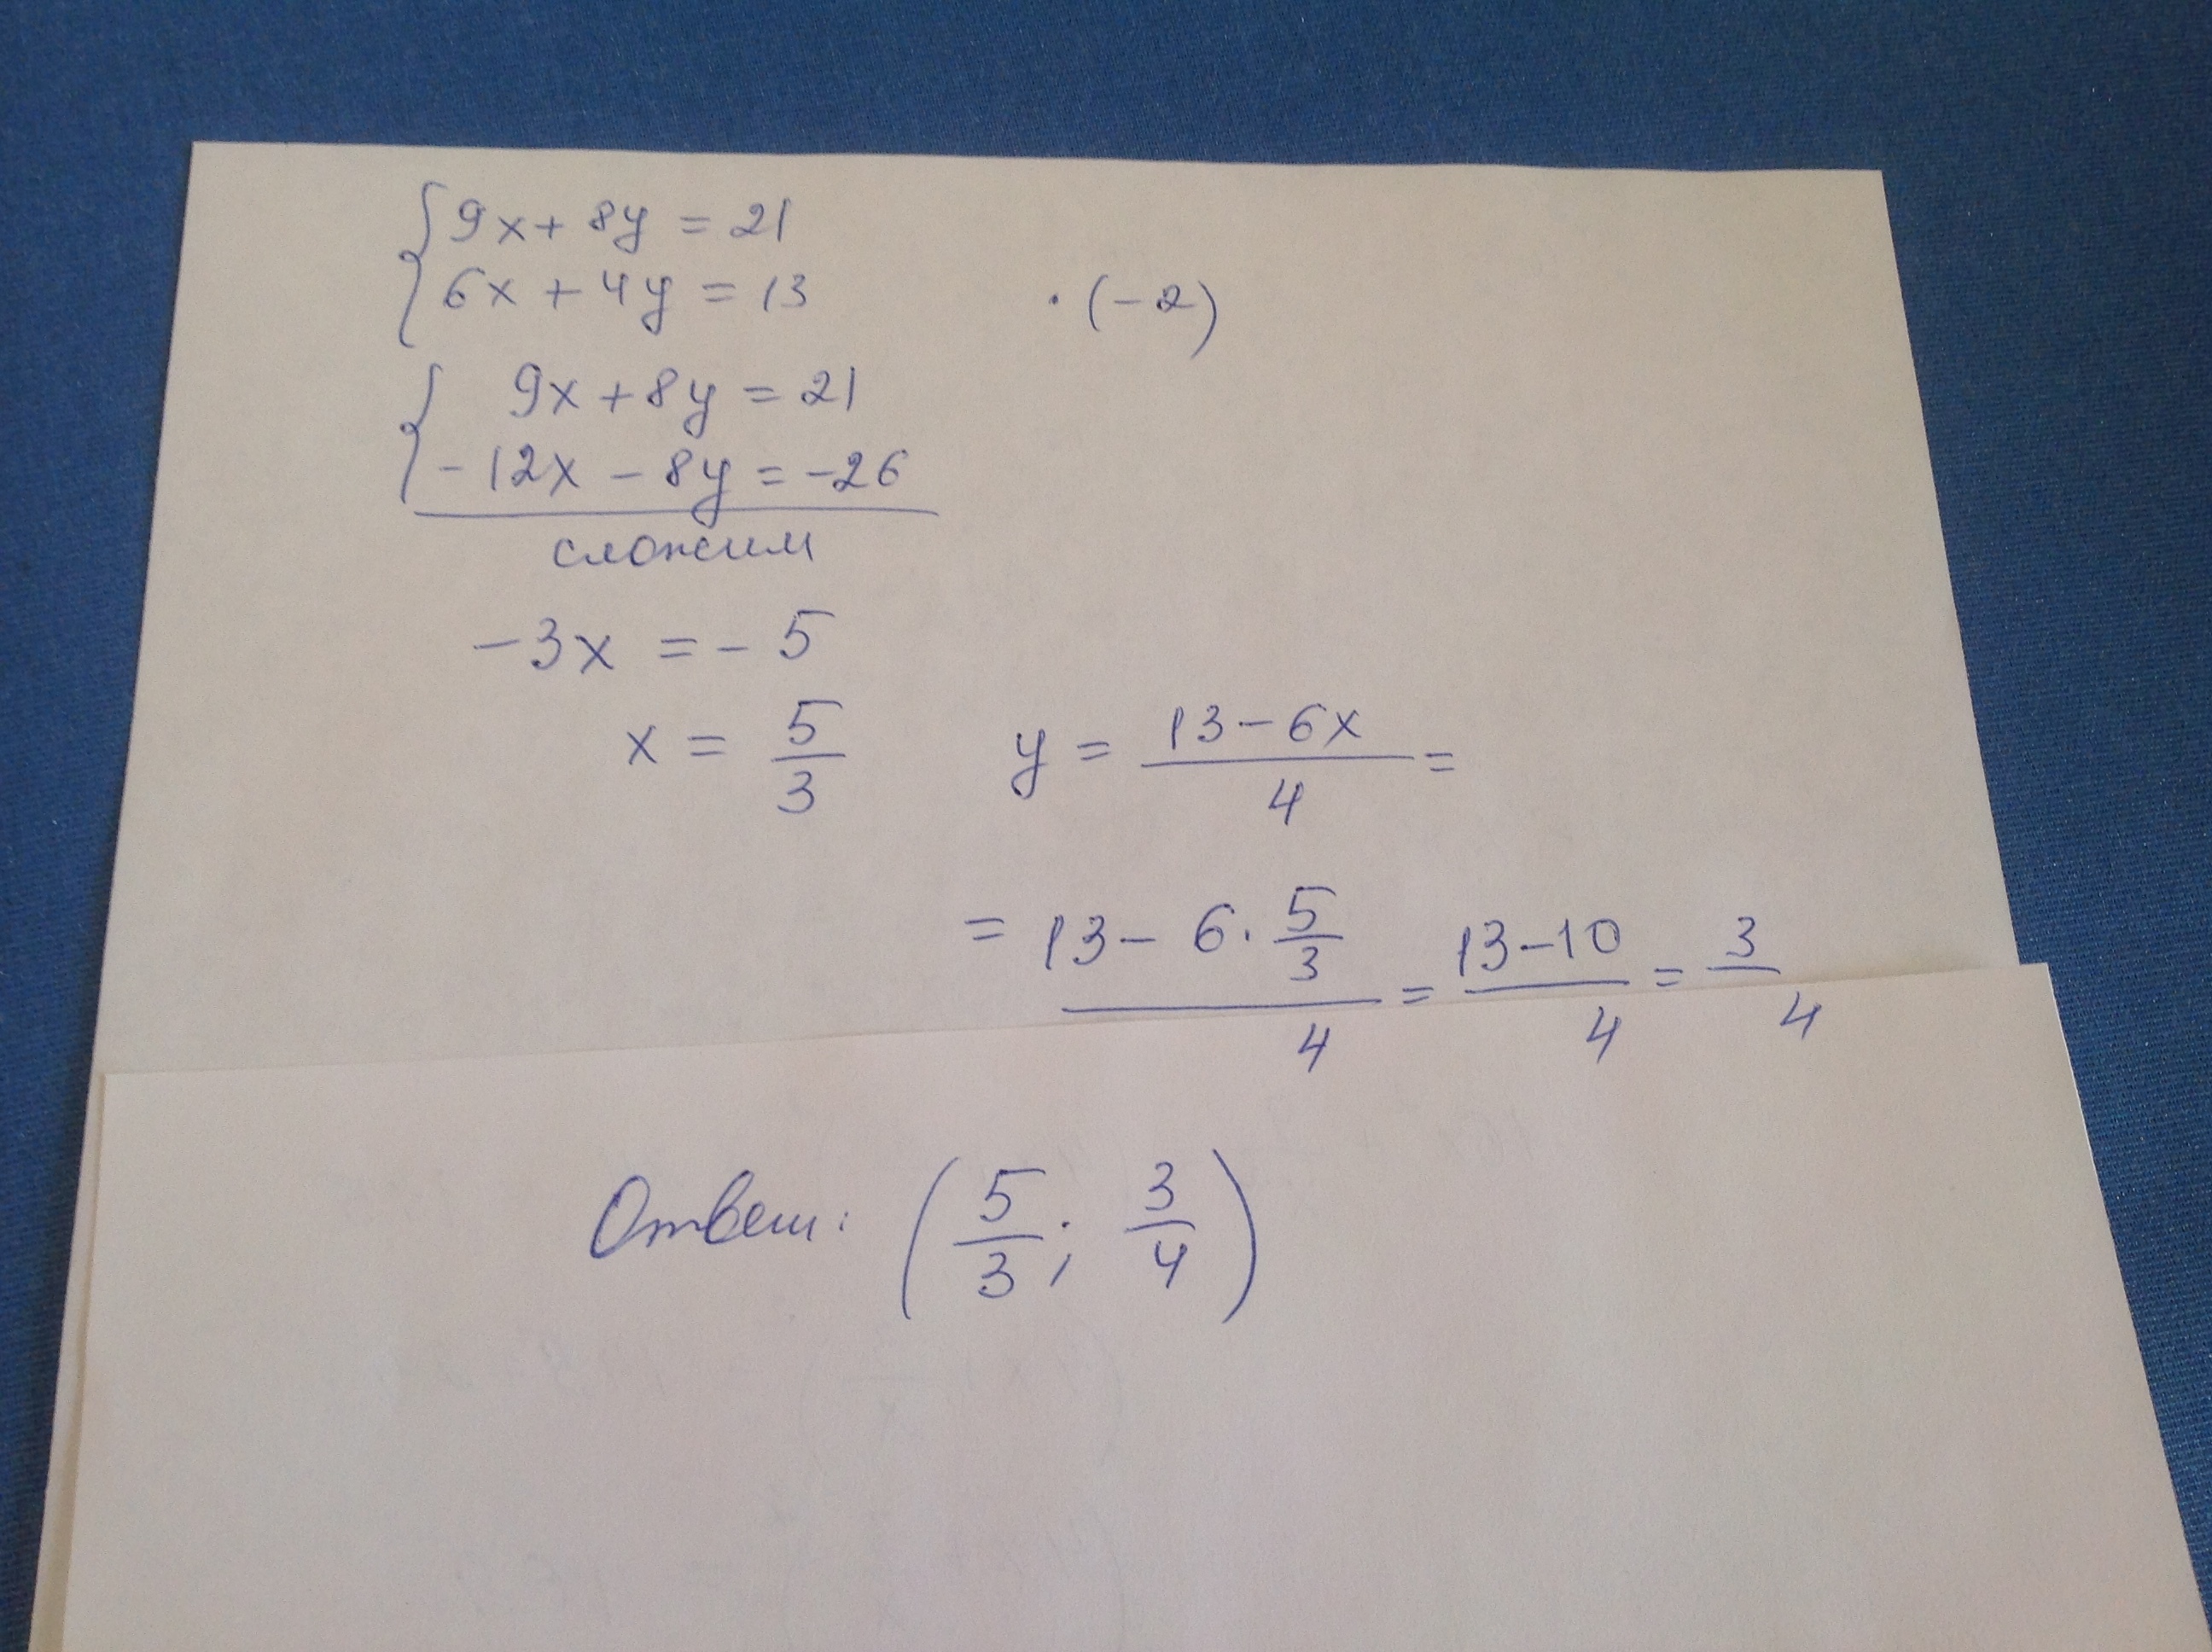 9x + 8y = 21
6x + 4y = 13 · (-2)
9x + 8y = 21
-12x - 8y = -26
сложим
-3x = -5
x = 5/3 y = (13 - 6x)/4 =
= (13 - 6 · 5/3)/4 = (13 - 10)/4 = 3/4
Ответ: (5/3; 3/4)